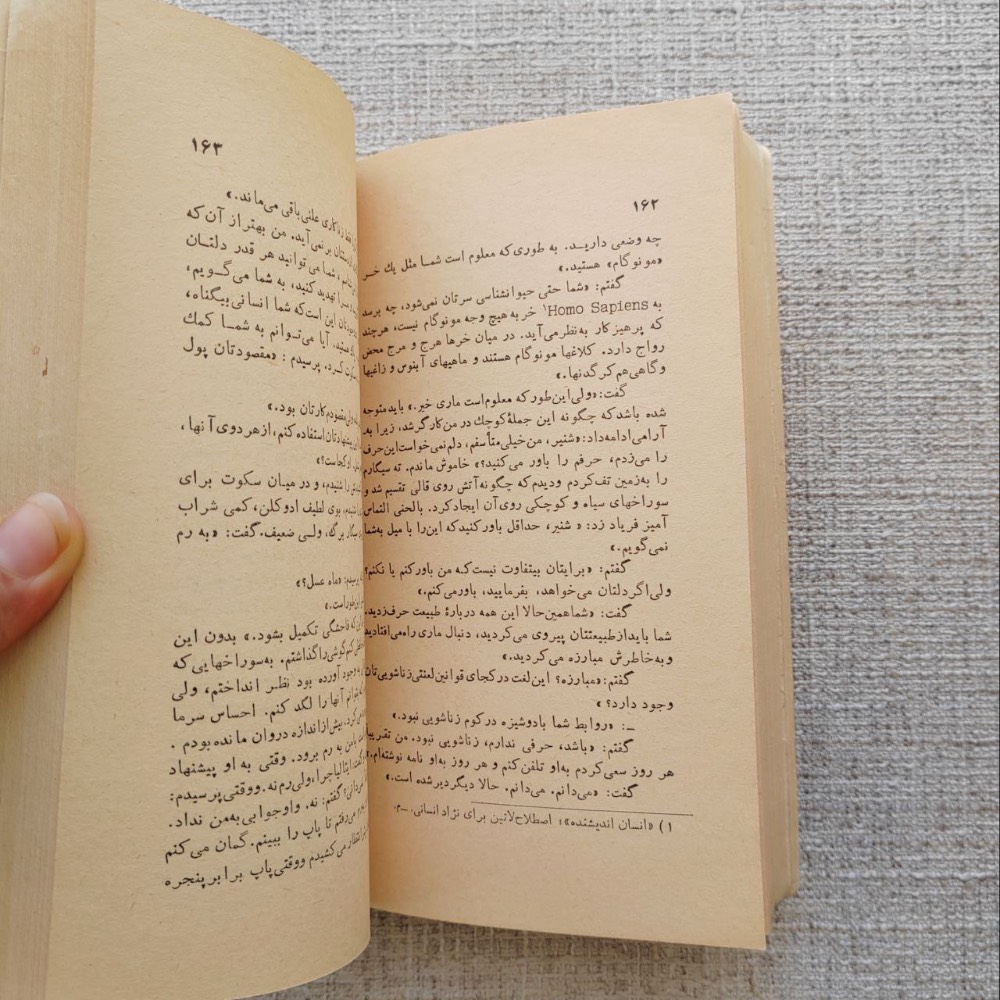 ۱۶۲
چه وضعی دارید. به طوری‌که معلوم است شما مثل یك خر
«مونوگام» هستید.»
گفتم: «شما حتی حیوانشناسی سرتان نمی‌شود، چه برسد
به Homo Sapiens۱ خر به هیچ وجه مونوگام نیست، هرچند
که پرهیز کار به‌نظر می‌آید. در میان خرها هرج و مرج محض
رواج دارد. کلاغها مونوگام هستند و ماهیهای آبنوس و زاغیها
و گاهی هم کرگدنها.»
گفت: «ولی این‌طور که معلوم است ماری خیر.» باید متوجه
شده باشد که چگونه این جملۀ کوچك در من کارگر شد، زیرا به
آرامی ادامه داد: «شنیر، من خیلی متأسفم، دلم نمی‌خواست این حرف
را می‌زدم، حرفم را باور می‌کنید؟» خاموش ماندم. ته سیگارم
را به زمین تف کردم و دیدم که چگونه آتش روی قالی تقسیم شد و
سوراخهای سیاه و کوچکی روی آن ایجاد کرد. با لحنی التماس
آمیز فریاد زد: «شنیر، حداقل باور کنید که این را با میل به شما
نمی‌گویم.»
گفتم: «برایتان بیتفاوت نیست که من باور کنم یا نکنم؟
ولی اگر دلتان می‌خواهد، بفرمایید، باور می‌کنم.»
گفت: «شما همین حالا این همه دربارۀ طبیعت حرف زدید.
شما باید از طبیعتتان پیروی می‌کردید، دنبال ماری راه می‌افتادید
و به خاطرش مبارزه می‌کردید.»
گفتم: «مبارزه؟ این لغت در کجای قوانین لعنتی زناشویی‌تان
وجود دارد؟»
ــ: «روابط شما با دوشیزه درکوم زناشویی نبود.»
گفتم: «باشد، حرفی ندارم، زناشویی نبود. من تقریباً
هر روز سعی کردم به او تلفن کنم و هر روز به او نامه نوشته‌ام.»
گفت: «می‌دانم. می‌دانم. حالا دیگر دیر شده است.»
۱) «انسان اندیشنده»؛ اصطلاح لاتین برای نژاد انسانی. ــم.
۱۶۳
فقط زناکاری علنی باقی می‌ماند.»
بر نمی‌آید. من بهتر از آن که
شما می‌توانید هر قدر دلتان
تهدید کنید، به شما می‌گویم،
این است که شما انسانی بیگناه،
هستید، آیا می‌توانم به شما کمك
کرد. پرسیدم: «مقصودتان پول
مقصودم کارتان بود.»
پیشنهادتان استفاده کنم، از هر دوی آنها،
او کجاست؟»
را شنیدم، و در میان سکوت برای
بوی لطیف ادوکلن، کمی شراب
سیگار برگ، ولی ضعیف. گفت: «به رم
پرسیدم: «ماه عسل؟»
این‌طور است.»
که فاحشگی تکمیل بشود.» بدون این
کنم گوشی را گذاشتم. به سوراخهایی که
به وجود آورده بود نظر انداختم، ولی
آنها را لگد کنم. احساس سرما
بیش از اندازه در وان مانده بودم.
با من به رم برود. وقتی به او پیشنهاد
گفت: ایتالیا چرا، ولی رم نه. و وقتی پرسیدم:
می‌دانی؟ گفتم: نه. و او جوابی به من نداد.
می‌رفتم تا پاپ را ببینم. گمان می‌کنم
انتظار می‌کشیدم و وقتی پاپ برابر پنجره